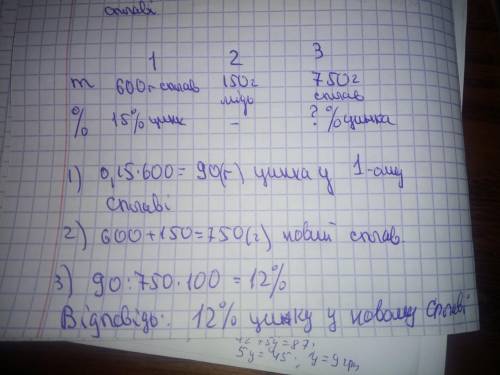 сплаві
1 2 3
m 600г сплав 150г мідь 750г сплав
% 15% цинк – ? % цинка
1) 0,15·600=90(г) цинка у 1-ому
сплаві
2) 600+150=750(г) новий сплав.
3) 90:750·100=12%
Відповідь: 12% цинку у новому сплаві
+5y=87
5y=45; y=9 грн